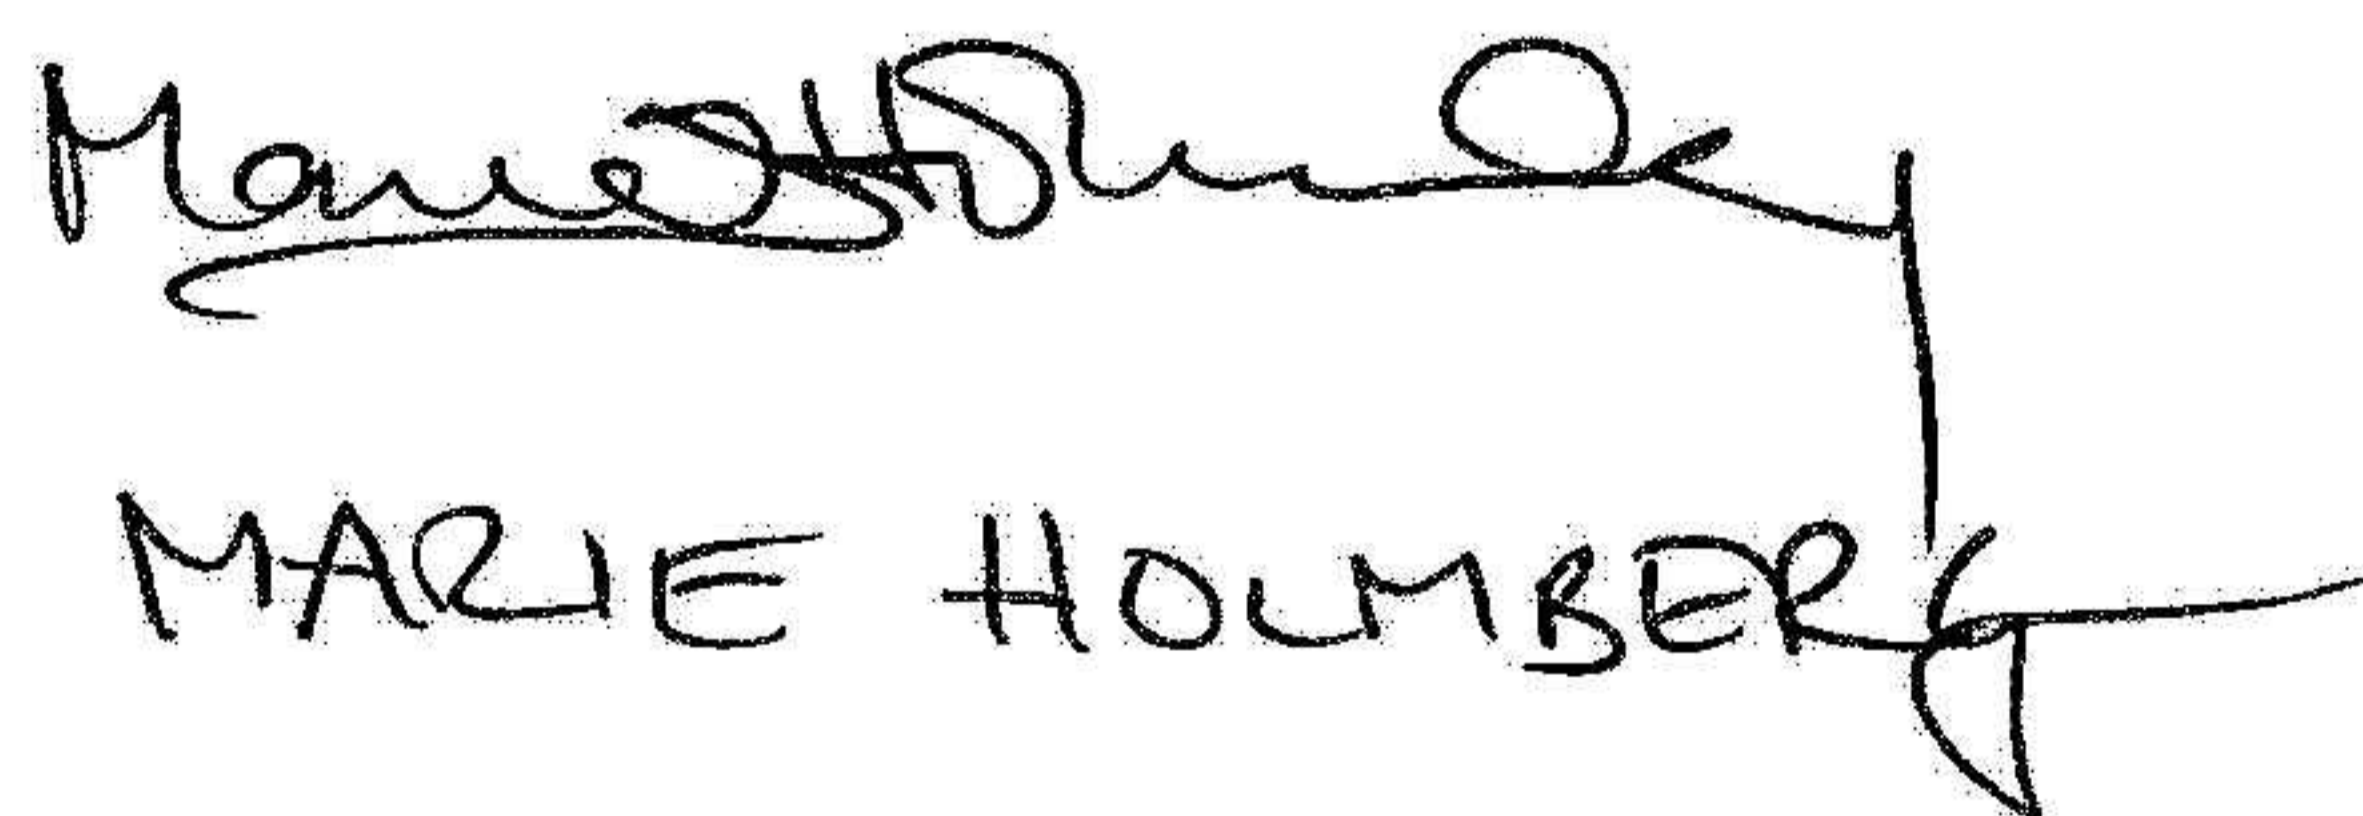 Marie Holmberg
MARIE HOLMBERG